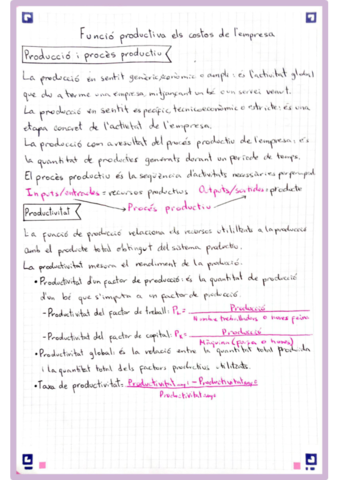 Funció productiva els costos de l'empresa
Producció i procès productiu
La producció en sentit genèric, econòmic o ampli: és l'activitat global
que du a terme una empresa, mitjançant un bé o un servei venut.
La producció en sentit específic, tecnicoeconòmic o estricte: és una
etapa concret de l'activitat de l'empresa.
La producció com a resultat del procés productiu de l'empresa: és
la quantitat de productes generats durant un període de temps.
El procés productiu és la seqüència d'activitats necessàries per
Inputs/entrades = recursos productius Outputs/sortides = producte
Procés productiu
Productivitat
La funció de producció relaciona els recursos utilitzats a la producció
amb el producte total obtingut del sistema productiu.
La productivitat mesura el rendiment de la producció.
• Productivitat d'un factor de producció: és la quantitat de producció
d'un bé que s'imputa a un factor de producció.
- Productivitat del factor de treball: PL = Producció
Nombre treballadors o hores
- Productivitat del factor de capital: Producció
Màquines (o hores)
• Productivitat global: és la relació entre la quantitat total produida
i la quantitat total dels factors productius utilitzats.
• Taxa de productivitat = Productivitat - Productivitat
Productivitat